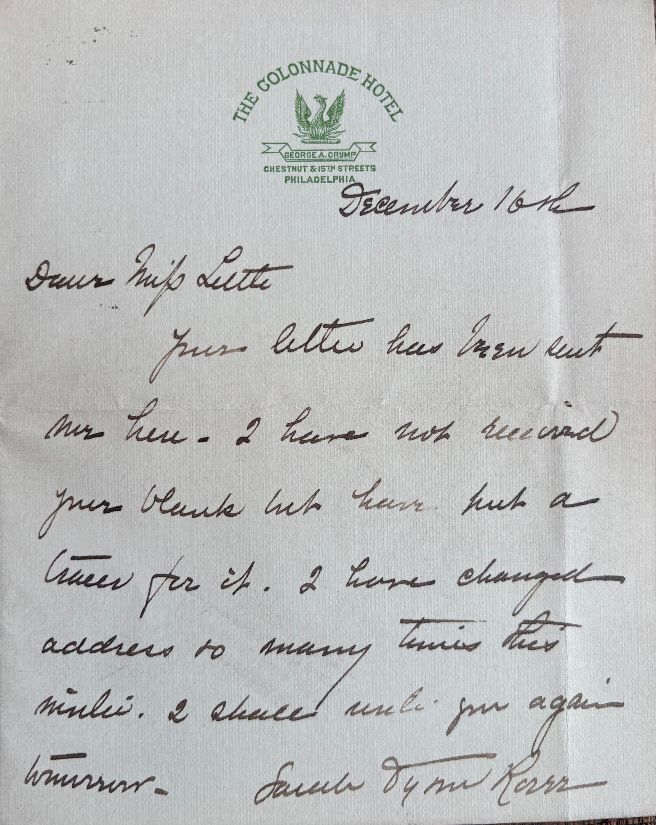 THE COLONNADE HOTEL
GEORGE A. CRUMP
CHESTNUT & 15TH STREETS
PHILADELPHIA
December 16th
Dear Miss Little
your letter has been sent
me here - I have not received
your blank but have put a
tracer for it. I have changed
address so many times this
winter. I shall write you again
tomorrow - Sarah Tyson Rorer